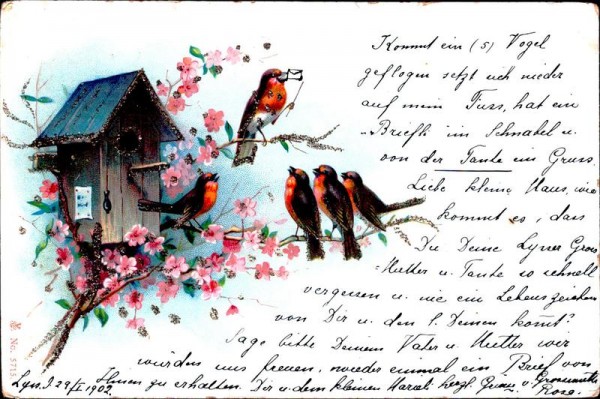 Kommt ein (s) Vogel
geflogen setzt sich nieder
auf mein Fuss, hat ein
Briefli im Schnabel u.
von der Tante ein Gruss.
Liebe kleine Maus, wie
kommt es, dass
Du Deine Lysser Gross
Mutter u. Tante so schnell
vergessen u. nie ein Lebenszeichen
von Dir u. den l. Deinen kommt?
Sage bitte Deinem Vater u. Mutter wir
würden uns freuen, wieder einmal ein Brief von
Ihnen zu erhalten. Dir u. dem kleinen Marcel herzl. Grüsse v. Grossmutter
Rosa.
Lyss, d. 29/I 1902.
No. 5715